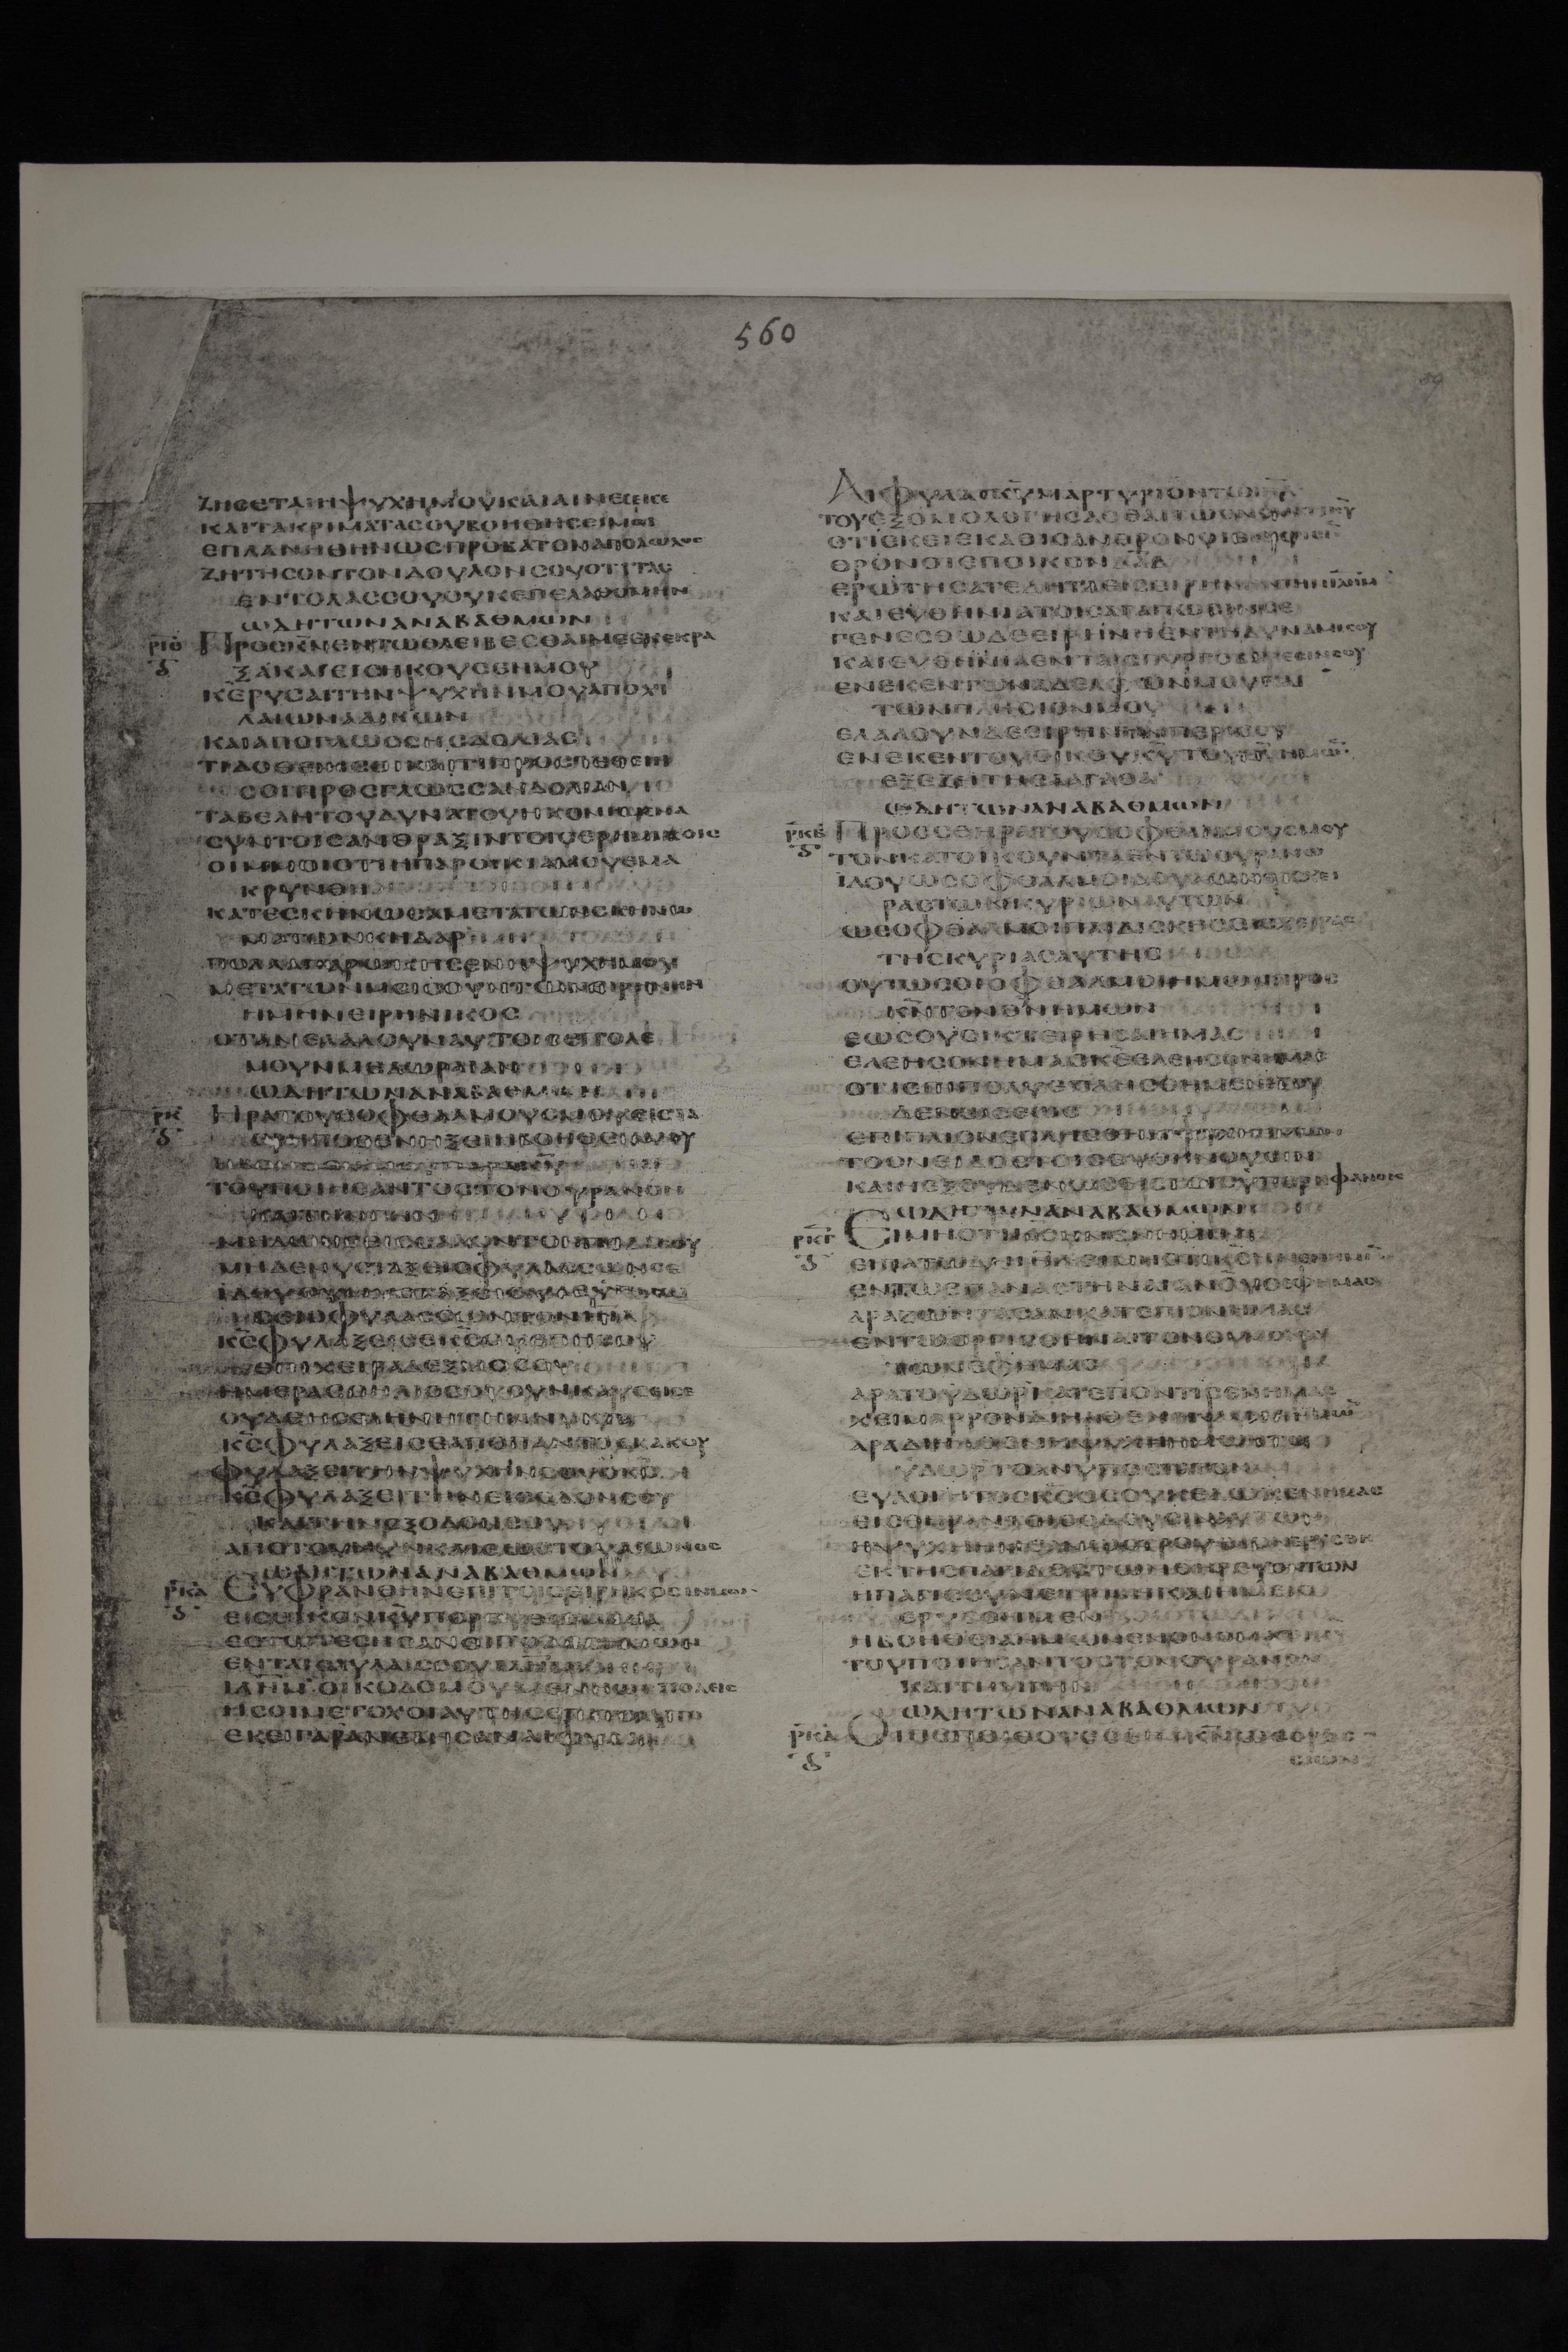 560
ΖΗϹΕΤΑΙΗΨΥΧΗΜΟΥΚΑΙΑΙΝΕϹΕΙϹΕ
ΚΑΙΤΑΚΡΙΜΑΤΑϹΟΥΒΟΗΘΗϹΕΙΜΟΙ
ΕΠΛΑΝΗΘΗΝΩϹΠΡΟΒΑΤΟΝΑΠΟΛΩΛΟϹ
ΖΗΤΗϹΟΝΤΟΝΔΟΥΛΟΝϹΟΥΟΤΙΤΑϹ
ΕΝΤΟΛΑϹϹΟΥΟΥΚΕΠΕΛΑΘΟΜΗΝ
ΩΔΗΤΩΝΑΝΑΒΑΘΜΩΝ
ΡΙΘ ΠΡΟϹΚΝΕΝΤΩΘΛΕΙΒΕϹΘΑΙΜΕΕΚΕΚΡΑ
ΞΑΚΑΙΕΙϹΗΚΟΥϹΕΝΜΟΥ
ΚΕΡΥϹΑΙΤΗΝΨΥΧΗΝΜΟΥΑΠΟΧΙ
ΛΕΩΝΑΔΙΚΩΝ
ΚΑΙΑΠΟΓΛΩϹϹΗϹΔΟΛΙΑϹ
ΤΙΔΟΘΕΙΗϹΟΙΚΑΙΤΙΠΡΟϹΤΕΘΕΙΗ
ϹΟΙΠΡΟϹΓΛΩϹϹΑΝΔΟΛΙΑΝ
ΤΑΒΕΛΗΤΟΥΔΥΝΑΤΟΥΗΚΟΝΗΜΕΝΑ
ϹΥΝΤΟΙϹΑΝΘΡΑΞΙΝΤΟΙϹΕΡΗΜΙΚΟΙϹ
ΟΙΜΜΟΙΟΤΙΗΠΑΡΟΙΚΙΑΜΟΥΕΜΑ
ΚΡΥΝΘΗ
ΚΑΤΕϹΚΗΝΩϹΑΜΕΤΑΤΩΝϹΚΗΝΩ
ΜΑΤΩΝΚΗΔΑΡ
ΠΟΛΛΑΠΑΡΩΚΗϹΕΝΗΨΥΧΗΜΟΥ
ΜΕΤΑΤΩΝΜΕΙϹΟΥΝΤΩΝΕΙΡΗΝΗΝ
ΗΜΗΝΕΙΡΗΝΙΚΟϹ
ΟΤΑΝΕΛΑΛΟΥΝΑΥΤΟΙϹΕΠΟΛΕ
ΜΟΥΝΜΕΔΩΡΕΑΝ
ΩΔΗΤΩΝΑΝΑΒΑΘΜΩΝ
ΡΚ ΗΡΑΤΟΥϹΟΦΘΑΛΜΟΥϹΜΟΥΕΙϹΤΑ
ΟΡΗΠΟΘΕΝΗΞΕΙΗΒΟΗΘΕΙΑΜΟΥ
ΤΟΥΠΟΙΗϹΑΝΤΟϹΤΟΝΟΥΡΑΝΟΝ
ΜΗΔΕΝΥϹΤΑΞΕΙΟΦΥΛΑϹϹΩΝϹΕ
ΚΕΦΥΛΑΞΕΙϹΕΚΕϹΚΕΠΗϹΟΥ
ΕΠΙΧΕΙΡΑΔΕΞΙΑϹϹΟΥ
ΗΜΕΡΑϹΟΗΛΙΟϹΟΥϹΥΝΚΑΥϹΕΙϹΕ
ΟΥΔΕΗϹΕΛΗΝΗΤΗΝΝΥΚΤΑ
ΚΕΦΥΛΑΞΕΙϹΕΑΠΟΠΑΝΤΟϹΚΑΚΟΥ
ΦΥΛΑΞΕΙΤΗΝΨΥΧΗΝϹΟΥΟΚϹ
ΚΕΦΥΛΑΞΕΙΤΗΝΕΙϹΟΔΟΝϹΟΥ
ΚΑΙΤΗΝΕΞΟΔΟΝϹΟΥ
ΑΠΟΤΟΥΝΥΝΚΑΙΕΩϹΤΟΥΑΙΩΝΟϹ
ΩΔΗΤΩΝΑΝΑΒΑΘΜΩΝ
ΡΚΑ ΕΥΦΡΑΝΘΗΝΕΠΙΤΟΙϹΕΙΡΗΚΟϹΙΝΜΟΙ
ΕΙϹΟΙΚΟΝΚΥΠΟΡΕΥϹΟΜΕΘΑ
ΕϹΤΩΤΕϹΗϹΑΝΟΙΠΟΔΕϹΗΜΩΝ
ΕΝΤΑΙϹΑΥΛΑΙϹϹΟΥΙΛΗΜ
ΙΛΗΜΟΙΚΟΔΟΜΟΥΜΕΝΗΩϹΠΟΛΕΙϹ
ΗϹΟΙΜΕΤΟΧΟΙΑΥΤΗϹΕΠΙΤΟΑΥΤΟ
ΕΚΕΙΓΑΡΑΝΕΒΗϹΑΝΑΙΦΥΛΑΙ
ΑΙΦΥΛΑΙΚΥΜΑΡΤΥΡΙΟΝΤΩΙΗΛ
ΤΟΥΕΞΟΜΟΛΟΓΗϹΑϹΘΑΙΤΩΟΝΟΜΑΤΙΚΥ
ΟΤΙΕΚΕΙΕΚΑΘΙϹΑΝΘΡΟΝΟΙΕΙϹΚΡΙϹΙΝ
ΘΡΟΝΟΙΕΠΟΙΚΟΝΔΑΔ
ΕΡΩΤΗϹΑΤΕΔΗΤΑΕΙϹΕΙΡΗΝΗΝΤΗΝΙΛΗΜ
ΚΑΙΕΥΘΗΝΙΑΤΟΙϹΑΓΑΠΩϹΙΝϹΕ
ΓΕΝΕϹΘΩΔΕΕΙΡΗΝΗΕΝΤΗΔΥΝΑΜΙϹΟΥ
ΚΑΙΕΥΘΗΝΙΑΕΝΤΑΙϹΠΥΡΓΟΒΑΡΕϹΙΝϹΟΥ
ΕΝΕΚΕΝΤΩΝΑΔΕΛΦΩΝΜΟΥΚΑΙ
ΤΩΝΠΛΗϹΙΟΝΜΟΥ
ΕΛΑΛΟΥΝΔΕΕΙΡΗΝΗΝΠΕΡΙϹΟΥ
ΕΝΕΚΕΝΤΟΥΟΙΚΟΥΚΥΤΟΥΘΥΗΜΩΝ
ΕΞΕΖΗΤΗϹΑΑΓΑΘΑ
ΩΔΗΤΩΝΑΝΑΒΑΘΜΩΝ
ΡΚΒ ΠΡΟϹϹΕΗΡΑΤΟΥϹΟΦΘΑΛΜΟΥϹΜΟΥ
ΤΟΝΚΑΤΟΙΚΟΥΝΤΑΕΝΤΩΟΥΡΑΝΩ
ΙΔΟΥΩϹΟΦΘΑΛΜΟΙΔΟΥΛΩΝΕΙϹΧΕΙ
ΡΑϹΤΩΝΚΥΡΙΩΝΑΥΤΩΝ
ΩϹΟΦΘΑΛΜΟΙΠΑΙΔΙϹΚΗϹΕΙϹΧΕΙΡΑϹ
ΤΗϹΚΥΡΙΑϹΑΥΤΗϹ
ΟΥΤΩϹΟΙΟΦΘΑΛΜΟΙΗΜΩΝΠΡΟϹ
ΚΝΤΟΝΘΝΗΜΩΝ
ΕΩϹΟΥΟΙΚΤΕΙΡΗϹΑΙΗΜΑϹ
ΕΛΕΗϹΟΝΗΜΑϹΚΕΕΛΕΗϹΟΝΗΜΑϹ
ΟΤΙΕΠΙΠΟΛΥΕΠΛΗϹΘΗΜΕΝΕΞΟΥ
ΔΕΝΩϹΕΩϹ
ΤΟΟΝΕΙΔΟϹΤΟΙϹΕΥΘΗΝΟΥϹΙΝ
ΚΑΙΗΕΞΟΥΔΕΝΩϹΙϹΤΟΙϹΥΠΕΡΗΦΑΝΟΙϹ
ΩΔΗΤΩΝΑΝΑΒΑΘΜΩΝ
ΡΚΓ ΕΙΜΗΟΤΙΚϹΗΝΕΝΗΜΙΝ
ΕΝΤΩΕΠΑΝΑϹΤΗΝΑΙΑΝΟΥϹΕΦΗΜΑϹ
ΑΡΑΖΩΝΤΑϹΑΝΚΑΤΕΠΙΟΝΗΜΑϹ
ΕΝΤΩΟΡΓΙϹΘΗΝΑΙΤΟΝΘΥΜΟΝΑΥ
ΤΩΝΕΦΗΜΑϹ
ΑΡΑΤΟΥΔΩΡΚΑΤΕΠΟΝΤΙϹΕΝΗΜΑϹ
ΧΕΙΜΑΡΡΟΝΔΙΗΛΘΕΝΗΨΥΧΗΗΜΩΝ
ΑΡΑΔΙΗΛΘΕΝΗΨΥΧΗΗΜΩΝΤΟ
ΥΔΩΡΤΟΑΝΥΠΟϹΤΑΤΟΝ
ΕΥΛΟΓΗΤΟϹΚϹΟϹΟΥΚΕΔΩΚΕΝΗΜΑϹ
ΕΙϹΘΗΡΑΝΤΟΙϹΟΔΟΥϹΙΝΑΥΤΩΝ
ΗΨΥΧΗΗΜΩΝΩϹϹΤΡΟΥΘΙΟΝΕΡΥϹΘΗ
ΕΚΤΗϹΠΑΓΙΔΟϹΤΩΝΘΗΡΕΥΟΝΤΩΝ
ΗΠΑΓΙϹϹΥΝΕΤΡΙΒΗΚΑΙΗΜΕΙϹ
ΕΡΥϹΘΗΜΕΝ
ΗΒΟΗΘΕΙΑΗΜΩΝΕΝΟΝΟΜΑΤΙΚΥ
ΤΟΥΠΟΙΗϹΑΝΤΟϹΤΟΝΟΥΡΑΝΟΝ
ΚΑΙΤΗΝΓΗΝ
ΩΔΗΤΩΝΑΝΑΒΑΘΜΩΝ
ΡΚΔ ΟΙΠΕΠΟΙΘΟΤΕϹΕΠΙΚΝΩϹΟΡΟϹ
ϹΙΩΝ